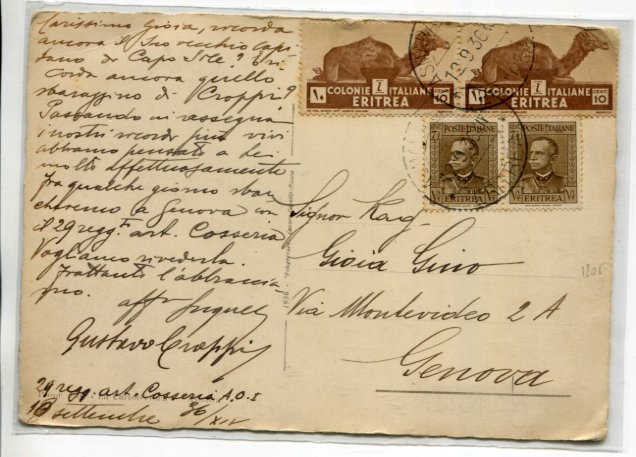 Carissimo Gioia, ricorda
ancora il Suo vecchio Capi-
tano di Capo Sole? Ri-
corda ancora quello
sbarazzino di Croppi?
Passando in rassegna
i nostri ricordi più vivi
abbiamo pensato a Lei
molto affettuosamente
fra qualche giorno sbar
cheremo a Genova con
il 29 regg. art. Cosseria
Vogliamo rivederla.
Frattanto l'abbraccia
aff
Gustavo Croppi
29 regg. art. Cosseria A.O.I
settembre 36/XIV
COLONIE ITALIANE
ERITREA
10
CENT
COLONIE ITALIANE
ERITREA
CENT
10
12.9.36
POSTE ITALIANE
ERITREA
POSTE ITALIANE
ERITREA
Signor Rag.
Gioia Gino
Via Montevideo 2 A
Genova
1936
1205